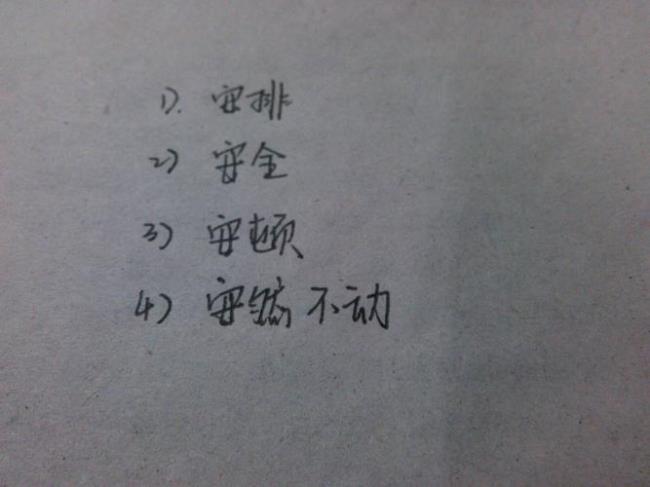 1). 安排
2) 安全
3) 安顿
4) 安然不动